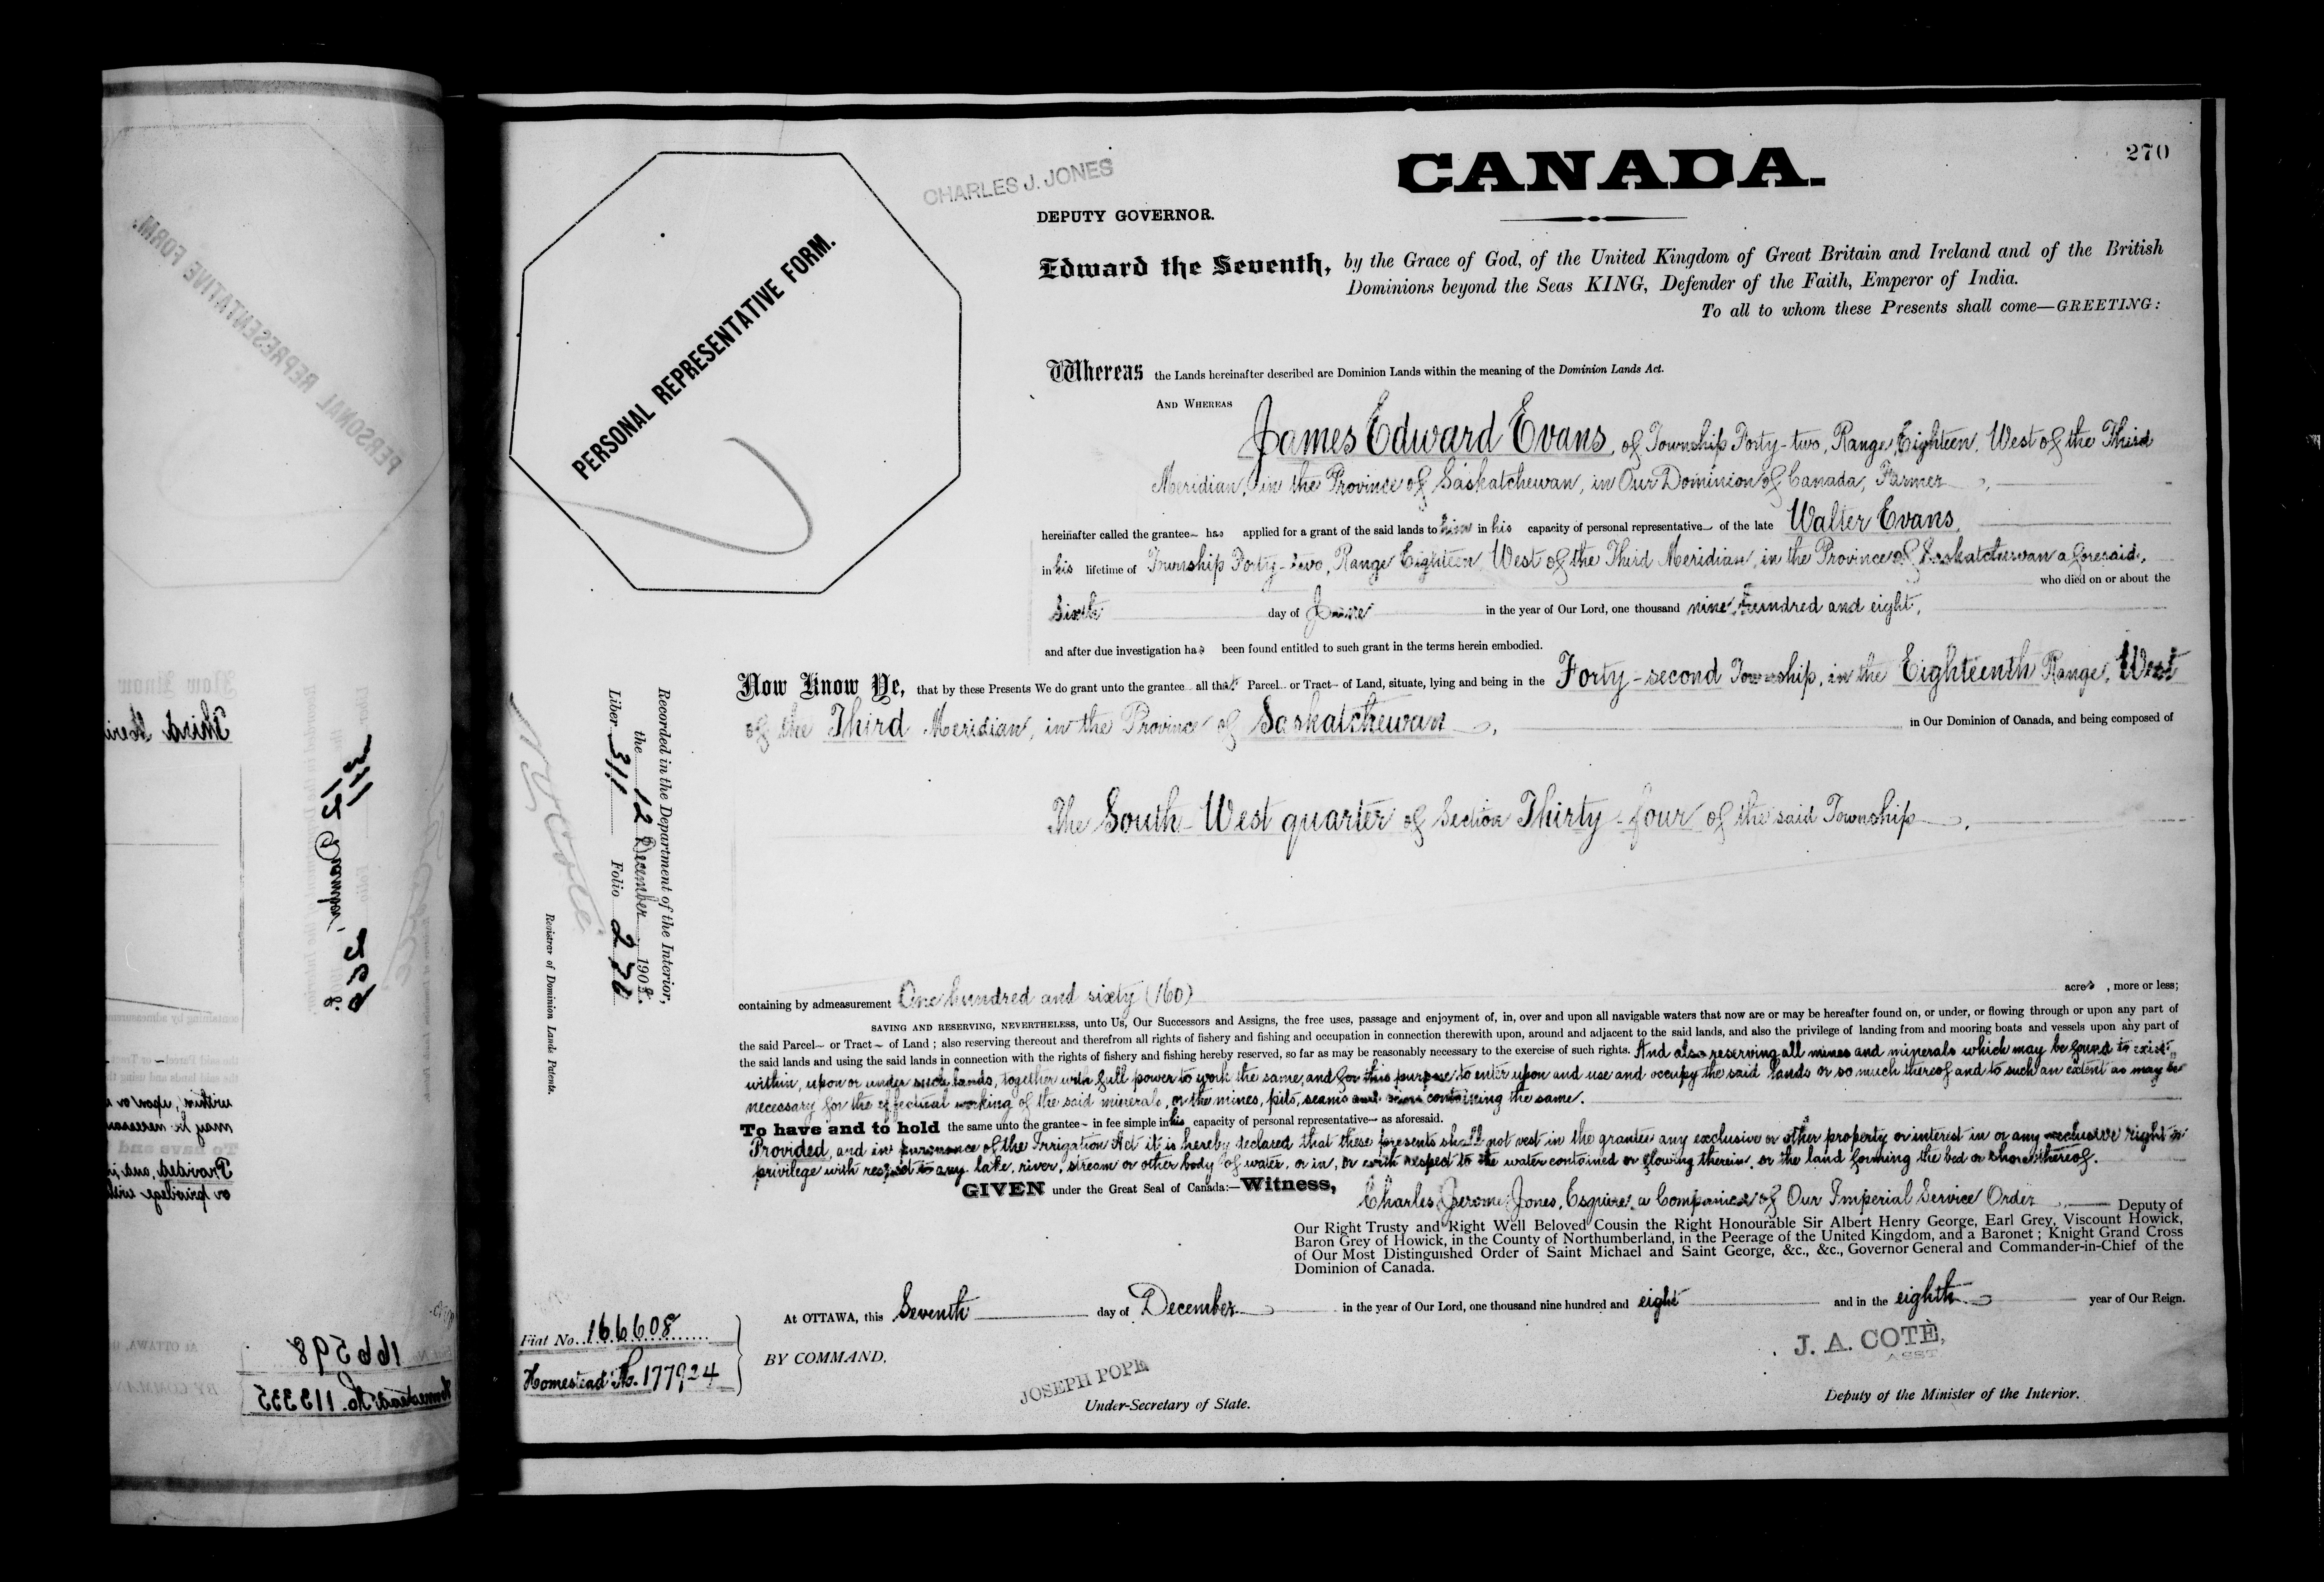 270
CHARLES J. JONES
CANADA.
DEPUTY GOVERNOR.
Edward the Seventh, by the Grace of God, of the United Kingdom of Great Britain and Ireland and of the British
Dominions beyond the Seas KING, Defender of the Faith, Emperor of India.
To all to whom these Presents shall come—GREETING:
PERSONAL REPRESENTATIVE FORM.
Whereas the Lands hereinafter described are Dominion Lands within the meaning of the Dominion Lands Act.
AND WHEREAS
James Edward Evans, of Township Forty-two, Range Eighteen, West of the Third
Meridian, in the Province of Saskatchewan, in Our Dominion of Canada, Farmer,
hereinafter called the grantee has applied for a grant of the said lands to him in his capacity of personal representative of the late Walter Evans,
in his lifetime of Township Forty-two, Range Eighteen West of the Third Meridian, in the Province of Saskatchewan aforesaid,
who died on or about the
sixth day of June in the year of Our Lord, one thousand nine hundred and eight,
and after due investigation has been found entitled to such grant in the terms herein embodied.
Now Know Ye, that by these Presents We do grant unto the grantee all that Parcel or Tract of Land, situate, lying and being in the Forty-second Township, in the Eighteenth Range, West
of the Third Meridian, in the Province of Saskatchewan, in Our Dominion of Canada, and being composed of
The South-West quarter of Section Thirty-four of the said Township.
containing by admeasurement One hundred and sixty (160) acres, more or less;
SAVING AND RESERVING, NEVERTHELESS, unto Us, Our Successors and Assigns, the free uses, passage and enjoyment of, in, over and upon all navigable waters that now are or may be hereafter found on, or under, or flowing through or upon any part of
the said Parcel or Tract of Land; also reserving thereout and therefrom all rights of fishery and fishing and occupation in connection therewith upon, around and adjacent to the said lands, and also the privilege of landing from and mooring boats and vessels upon any part of
the said lands and using the said lands in connection with the rights of fishery and fishing hereby reserved, so far as may be reasonably necessary to the exercise of such rights. And also reserving all mines and minerals which may be found to exist
within, upon or under such lands, together with full power to work the same, and for this purpose to enter upon and use and occupy the said lands or so much thereof and to such an extent as may be
necessary for the effectual working of the said minerals, or the mines, pits, seams and veins containing the same.
To have and to hold the same unto the grantee in fee simple in his capacity of personal representative as aforesaid.
Provided, and in pursuance of the Irrigation Act it is hereby declared that these presents shall not vest in the grantee any exclusive or other property or interest in or any exclusive right or
privilege with respect to any lake, river, stream or other body of water, or in, or with respect to the water contained or flowing therein, or the land forming the bed or shore thereof.
GIVEN under the Great Seal of Canada:—Witness, Charles Jerome Jones, Esquire, a Companion of Our Imperial Service Order, Deputy of
Our Right Trusty and Right Well Beloved Cousin the Right Honourable Sir Albert Henry George, Earl Grey, Viscount Howick,
Baron Grey of Howick, in the County of Northumberland, in the Peerage of the United Kingdom, and a Baronet; Knight Grand Cross
of Our Most Distinguished Order of Saint Michael and Saint George, &c., &c., Governor General and Commander-in-Chief of the
Dominion of Canada.
At OTTAWA, this Seventh day of December in the year of Our Lord, one thousand nine hundred and eight and in the eighth year of Our Reign.
BY COMMAND.
JOSEPH POPE
Under-Secretary of State.
J. A. COTÈ,
ASST.
Deputy of the Minister of the Interior.
Fiat No. 166608
Homestead No. 177924
Recorded in the Department of the Interior,
the 12 December 1908.
Liber 311 Folio 270
N. O. Coté
Registrar of Dominion Lands Patents.
PERSONAL REPRESENTATIVE FORM.
Now Know
Third Meri
311
12 December
166598
Homestead No. 113335